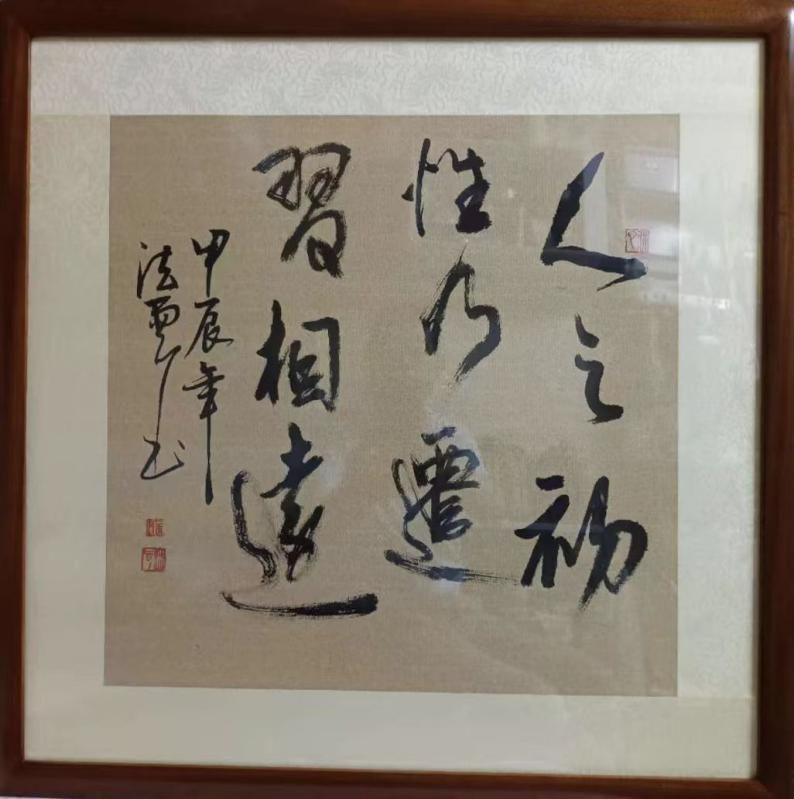 人之初
性乃遷
習相遠
甲辰年
法雲书